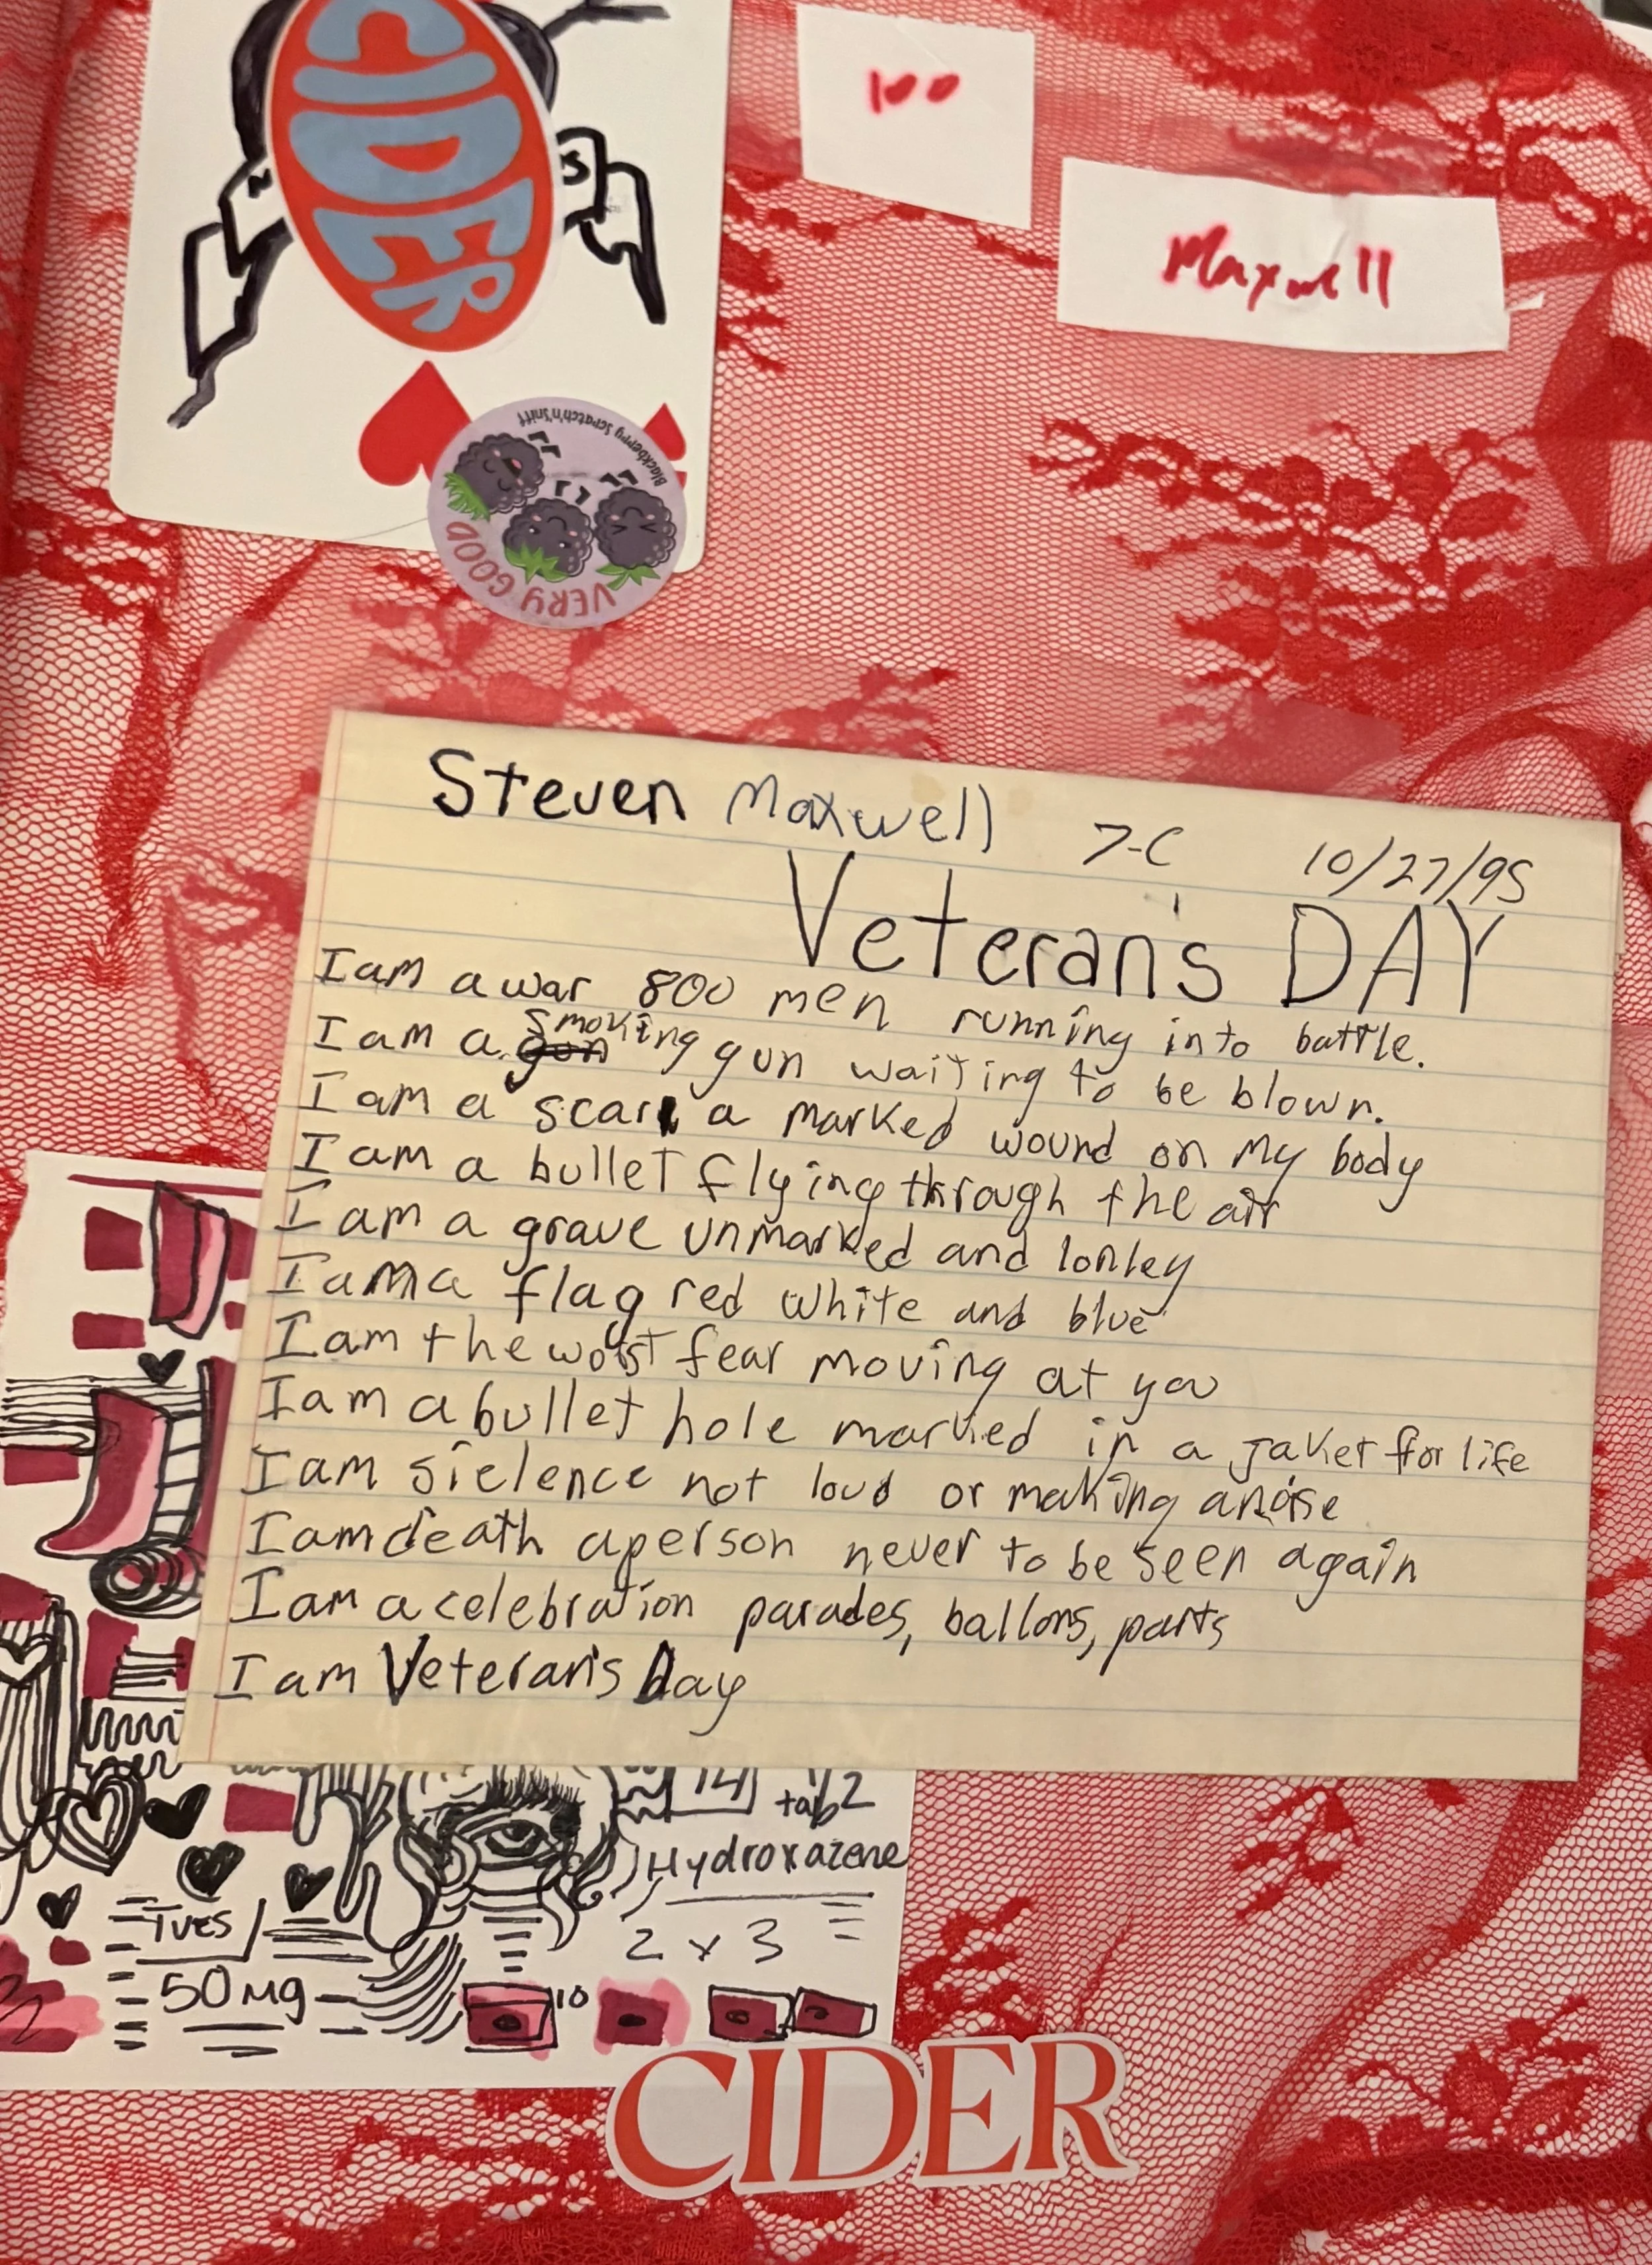 CIDER
N
S
Blackberry Scratch'n'Sniff
VERY GOOD
100
Maxwell
Steven Maxwell 7-C 10/27/95
Veteran's DAY
I am a war 800 men running into battle.
I am a smoking gun waiting to be blown.
I am a scar a marked wound on my body
I am a bullet flying through the air
I am a grave unmarked and lonley
I am a flag red white and blue
I am the worst fear moving at you
I am a bullet hole marked in a jaket for life
I am sielence not loud or making a noise
I am death a person never to be seen again
I am a celebration parades, ballons, parts
I am Veteran's Day
14 tab 2
Hydroxazene
2 x 3
Tues
50 mg
10
CIDER